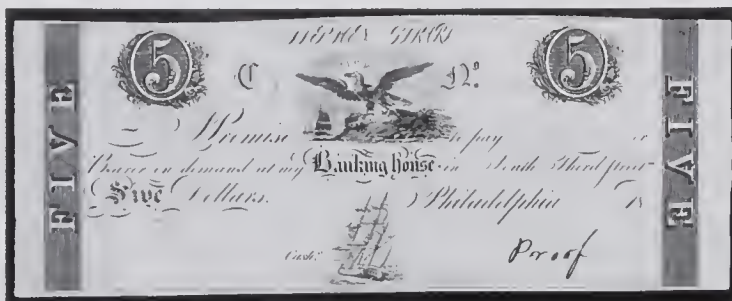 STEPHEN GIRARD
5 C No. 5
FIVE
I Promise to pay or
Bearer on demand at my Banking house in South Third street
Five Dollars. Philadelphia 18
Cashr.
Proof
FIVE